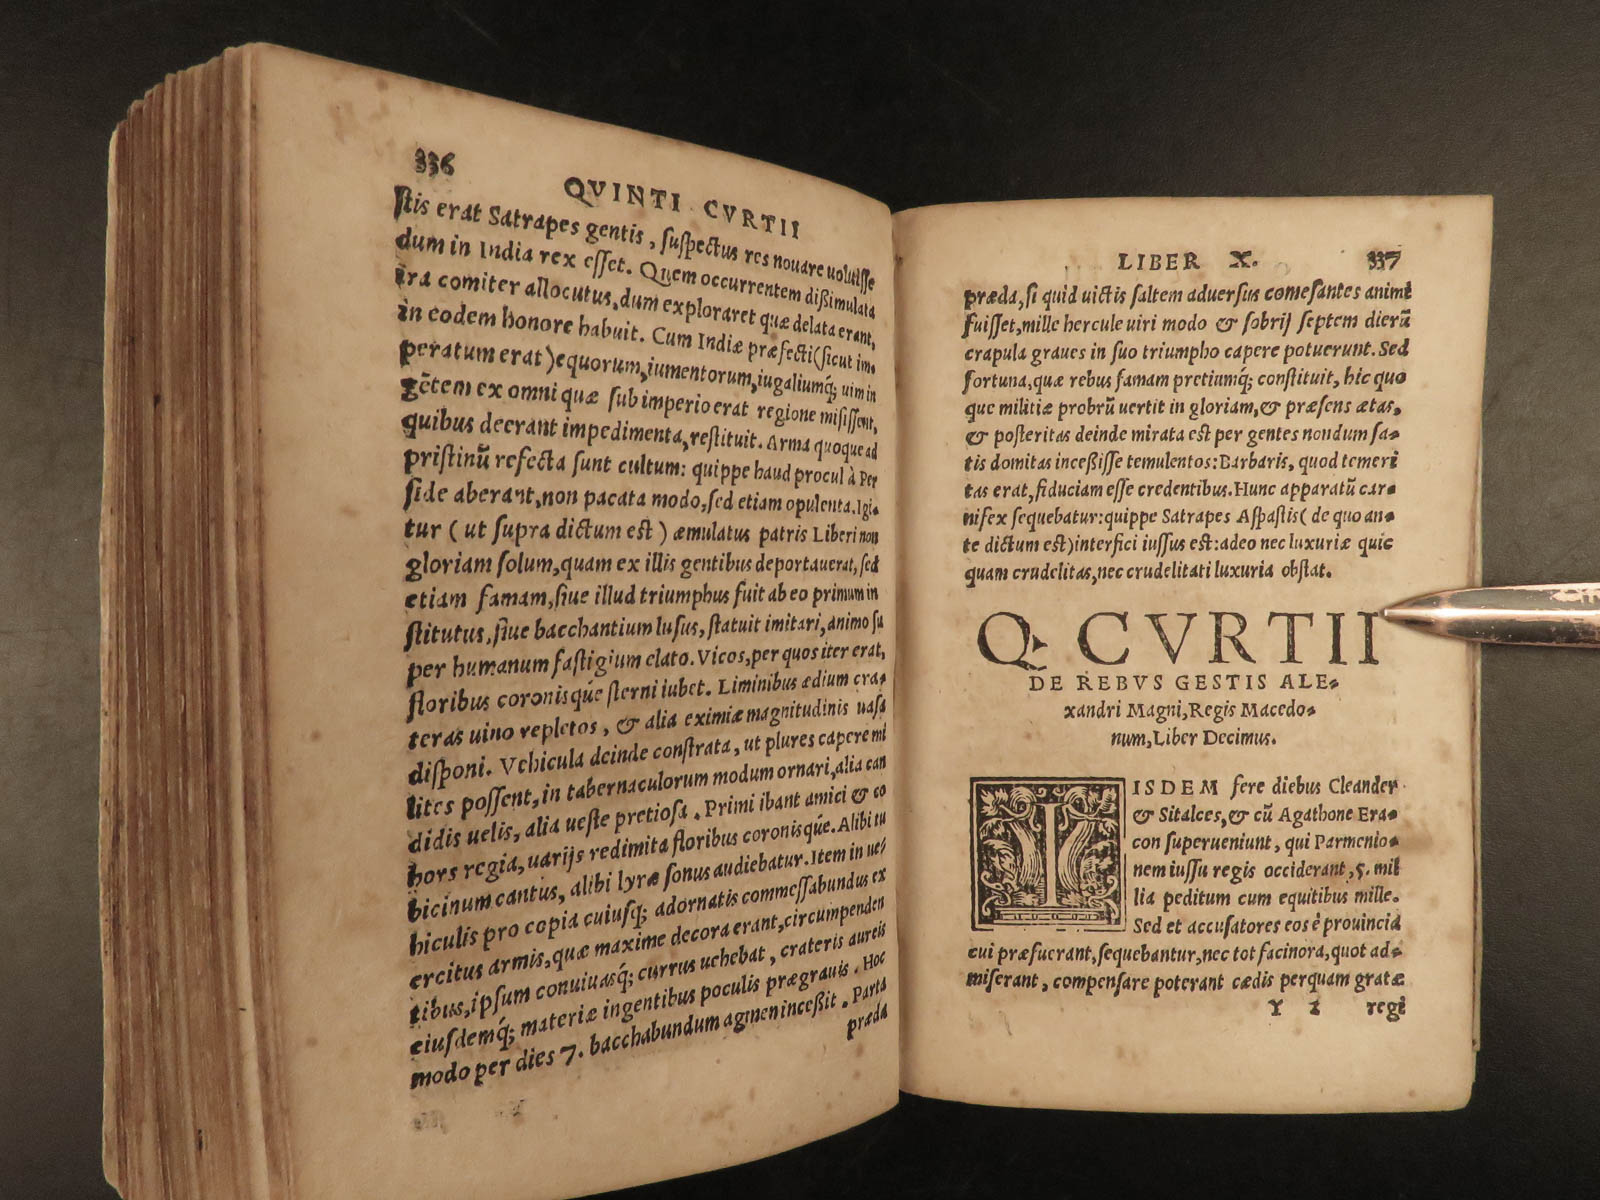 336
QVINTI CVRTII
stis erat Satrapes gentis, suspectus res nouare uoluisse
dum in India rex esset. Quem occurrentem dißimulata
ira comiter allocutus, dum exploraret quæ delata erant,
in eodem honore habuit. Cum Indiæ præfecti (sicut im-
peratum erat) equorum, iumentorum, iugaliumq́; uim in
gētem ex omni quæ sub imperio erat regione misissent,
quibus deerant impedimenta, restituit. Arma quoque ad
pristinū refecta sunt cultum: quippe haud procul à Per
side aberant, non pacata modo, sed etiam opulenta. Igi-
tur (ut supra dictum est) æmulatus patris Liberi non
gloriam solum, quam ex illis gentibus deportauerat, sed
etiam famam, siue illud triumphus fuit ab eo primum in
stitutus, siue bacchantium lusus, statuit imitari, animo su
per humanum fastigium elato. Vicos, per quos iter erat,
floribus coronisq́ue sterni iubet. Liminibus ædium cra-
teras uino repletos, & alia eximiæ magnitudinis uasa
disponi. Vehicula deinde constrata, ut plures capere mi
lites possent, in tabernaculorum modum ornari, alia can
didis uelis, alia ueste pretiosa. Primi ibant amici & co
hors regia, uarijs redimita floribus coronisq́ue. Alibi tu
bicinum cantus, alibi lyræ sonus audiebatur. Item in ue-
hiculis pro copia cuiusq́; adornatis commessabundus ex
ercitus armis, quæ maxime decora erant, circumpenden
tibus, ipsum conuiuasq́; currus uehebat, crateris aureis
eiusdemq́; materiæ ingentibus poculis prægrauis. Hoc
modo per dies 7. bacchabundum agmen inceßit. Parta
præda
LIBER X. 337
præda, si quid uictis saltem aduersus comesantes animi
fuisset, mille hercule uiri modo & sobrij septem dierū
crapula graues in suo triumpho capere potuerunt. Sed
fortuna, quæ rebus famam pretiumq́; constituit, hic quo
que militiæ probrū uertit in gloriam, & præsens ætas,
& posteritas deinde mirata est per gentes nondum sa-
tis domitas inceßisse temulentos: Barbaris, quod temeri
tas erat, fiduciam esse credentibus. Hunc apparatū car-
nifex sequebatur: quippe Satrapes Aspastis (de quo an-
te dictum est) interfici iussus est: adeo nec luxuriæ quic
quam crudelitas, nec crudelitati luxuria obstat.
Q. CVRTII
DE REBVS GESTIS ALE-
xandri Magni, Regis Macedo-
num, Liber Decimus.
IISDEM fere diebus Cleander
& Sitalces, & cū Agathone Era-
con superueniunt, qui Parmenio-
nem iussu regis occiderant, 5. mil
lia peditum cum equitibus mille.
Sed et accusatores eos è prouincia
cui præfuerant, sequebantur, nec tot facinora, quot ad-
miserant, compensare poterant cædis perquam gratæ
Y 1 regi